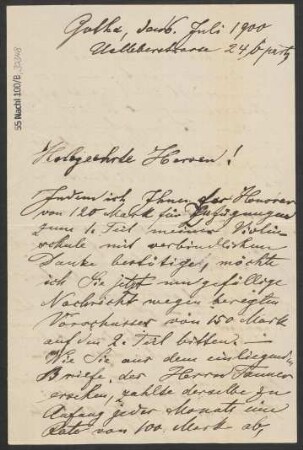 Gotha, den 6. Juli 1900
Uelleberstrasse 24 b part
55 Nachl 100/B
Hochgeehrte Herren!
Indem ich Ihnen das Honorar
von 120 Mark für
zum 1. Teil meiner Violin-
schule mit verbindlichem
Danke bestätige, möchte
ich Sie jetzt um gefällige
Nachricht wegen beregten
Vorschusses von 150 Mark
auf den 2. Teil bitten. –
Wie Sie aus dem einliegenden
Briefe des Herrn
ersehen, zahlte derselbe zu
Anfang jeden Monats eine
Rate von 100 Mark ab,